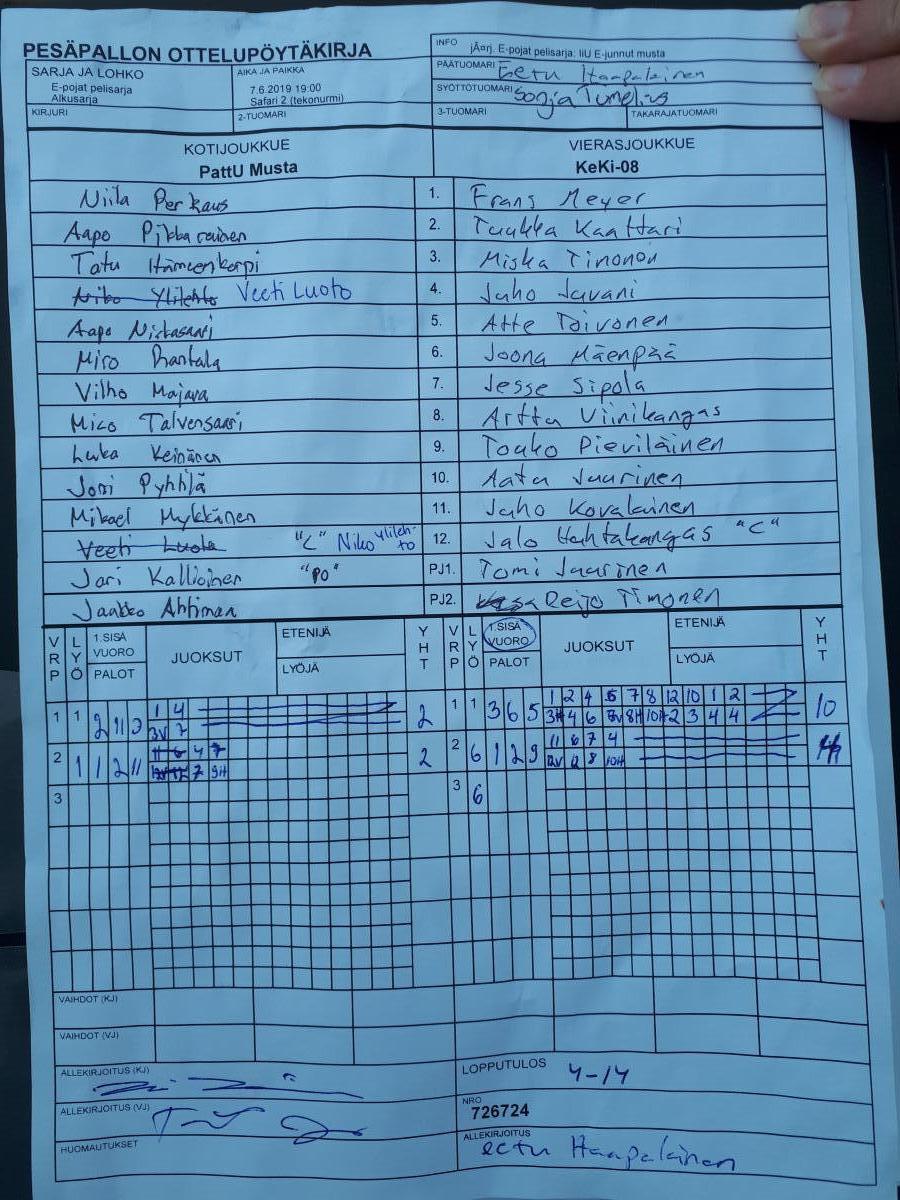 PESÄPALLON OTTELUPÖYTÄKIRJA
INFO jÄarj. E-pojat pelisarja: IiU E-junnut musta
SARJA JA LOHKO
E-pojat pelisarja
Alkusarja
AIKA JA PAIKKA
7.6.2019 19:00
Safari 2 (tekonurmi)
PÄÄTUOMARI Eetu Haapalainen
SYÖTTÖTUOMARI Sonja Tumelius
KIRJURI
2-TUOMARI
3-TUOMARI
TAKARAJATUOMARI
KOTIJOUKKUE
PattU Musta
VIERASJOUKKUE
KeKi-08
Niila Perkaus 1. Frans Meyer
Aapo Pikkarainen 2. Tuukka Kaattari
Tatu Hämeenkorpi 3. Miska Timonen
Niko Ylilehto Veeti Luoto 4. Juho Juvani
Aapo Niskasaari 5. Atte Toivonen
Miro Rantala 6. Joona Mäenpää
Vilho Majava 7. Jesse Sipola
Mico Talvensaari 8. Arttu Viinikangas
Luka Keinänen 9. Touko Pieviläinen
Joni Pyhhjä 10. Aatu Juurinen
Mikael Mykkänen 11. Juho Kovalainen
Veeti Luoto "C" Niko Ylilehto 12. Jalo Huhtakangas "C"
Jari Kallioinen "PO" PJ1. Tomi Juurinen
Jaakko Ahtiman PJ2. Reijo Timonen
VRP LYÖ 1.SISÄ VUORO PALOT JUOKSUT ETENIJÄ LYÖJÄ YHT VRP LYÖ 1.SISÄ VUORO PALOT JUOKSUT ETENIJÄ LYÖJÄ YHT
1 1 2 11 2 1 4 2 1 1 3 6 5 1 2 4 5 7 8 12 10 1 2 10
3V 7 3H 4 6 7V 8H 10H 2 3 4 4
2 1 1 2 11 11 6 4 7 2 2 6 1 2 9 11 6 7 4 4
7 9H 12V 12 8 10H
3 3 6
VAIHDOT (KJ)
VAIHDOT (VJ)
ALLEKIRJOITUS (KJ)
LOPPUTULOS 4-14
ALLEKIRJOITUS (VJ)
NRO
726724
HUOMAUTUKSET
ALLEKIRJOITUS
eetu Haapalainen